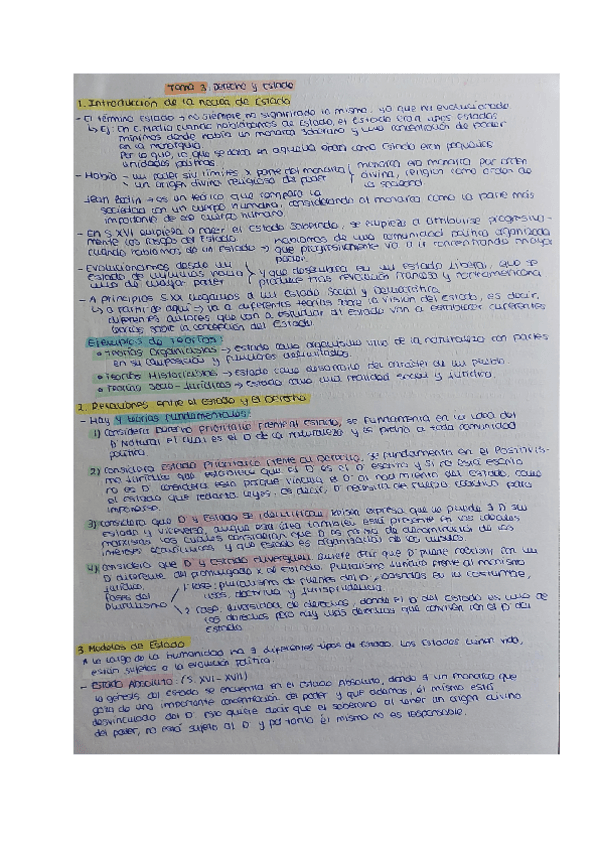 Tema 3: Derecho y Estado
1. Introducción de la noción de Estado
- El término Estado → no siempre ha significado lo mismo, ya que ha evolucionado
↳ Ej: En E. Media cuando hablábamos de Estado, el Estado era tipos estados
mínimos donde había un monarca soberano y una concentración de poder
en la monarquía.
Por lo que, lo que se daba en aquella eran como Estado eran pequeñas
unidades políticas.
- Había - un poder sin límites x parte del monarca
- un origen divino religioso del poder
monarca era monarca por orden
divina, religión como orden de
la sociedad
Jean Bodin → es un teórico que compara la
sociedad con un cuerpo humano, considerando al monarca como la parte más
importante de ese cuerpo humano.
- En S. XVI empieza a nacer el Estado Soberano, se empieza a atribuirse progresiva-
mente los rasgos del Estado
cuando hablamos de un estado → hablamos de una comunidad política organizada
que progresivamente va a ir concentrando mayor
poder.
- Evolucionamos desde un
estado de mínimos hacia
uno de mayor poder
y que desembocará en un estado Liberal, que se
produce tras revolución francesa y norteamericana
- A principios S.XX llegamos a un Estado Social y Democrático.
↳ a partir de aquí → va a diferentes teorías sobre la visión del Estado, es decir,
diferentes autores que van a estudiar al estado van a establecer diferentes
teorías sobre la concepción del Estado
Ejemplos de teorías:
• Teorías Organicistas → estado como organismo vivo de la naturaleza con partes
en su composición y funciones delimitadas.
• Teorías Historicistas → estado como desarrollo del carácter de un pueblo.
• Teorías Socio-Jurídicas → estado como una realidad social y jurídica.
2. Relaciones entre el Estado y el Derecho
- Hay 4 teorías fundamentales:
1) Considera Derecho prioritario frente al estado, se fundamenta en la idea del
D Natural. El cual es el D de la naturaleza y es previo a toda comunidad
política.
2) Considera Estado Prioritario frente al Derecho. Se fundamenta en el Positivis-
mo jurídico que establece que el D es el D escrito y si no está escrito
no es D. Considera esto porque vincula el D al nacimiento del estado, como
el estado que redacta leyes. Es decir, D necesita de fuerza coactiva para
imponerse.
3) Considera que D y Estado se identifican. Kelsen expresa que no puede D sin
estado y viceversa, aunque esta idea también está presente en los ideales
marxistas los cuales consideran que D es forma de denominación de los
intereses económicos y que estado es organización de los mismos.
4) Considera que D y Estado divergen. Quiere decir que D puede coexistir con un
D diferente del promulgado x el Estado. Pluralismo Jurídico frente al monismo
jurídico.
fases del
pluralismo
1ª fase: pluralismo de fuentes del D, basadas en la costumbre,
usos, doctrina y jurisprudencia.
2ª fase: diversidad de derechos, donde el D del Estado es uno de
los derechos pero hay más derechos que conviven con el D del
estado
3. Modelos de Estado
A lo largo de la humanidad ha diferentes tipos de Estado. Los Estados tienen vida,
están sujetos a la evolución política.
- Estado Absoluto: (S. XVI - XVII)
la génesis del estado se encuentra en el estado Absoluto, donde un monarca que
goza de una importante concentración de poder y que además, él mismo está
desvinculado del D. Esto quiere decir que el soberano al tener un origen divino
del poder, no está sujeto al D y por tanto él mismo no es responsable.